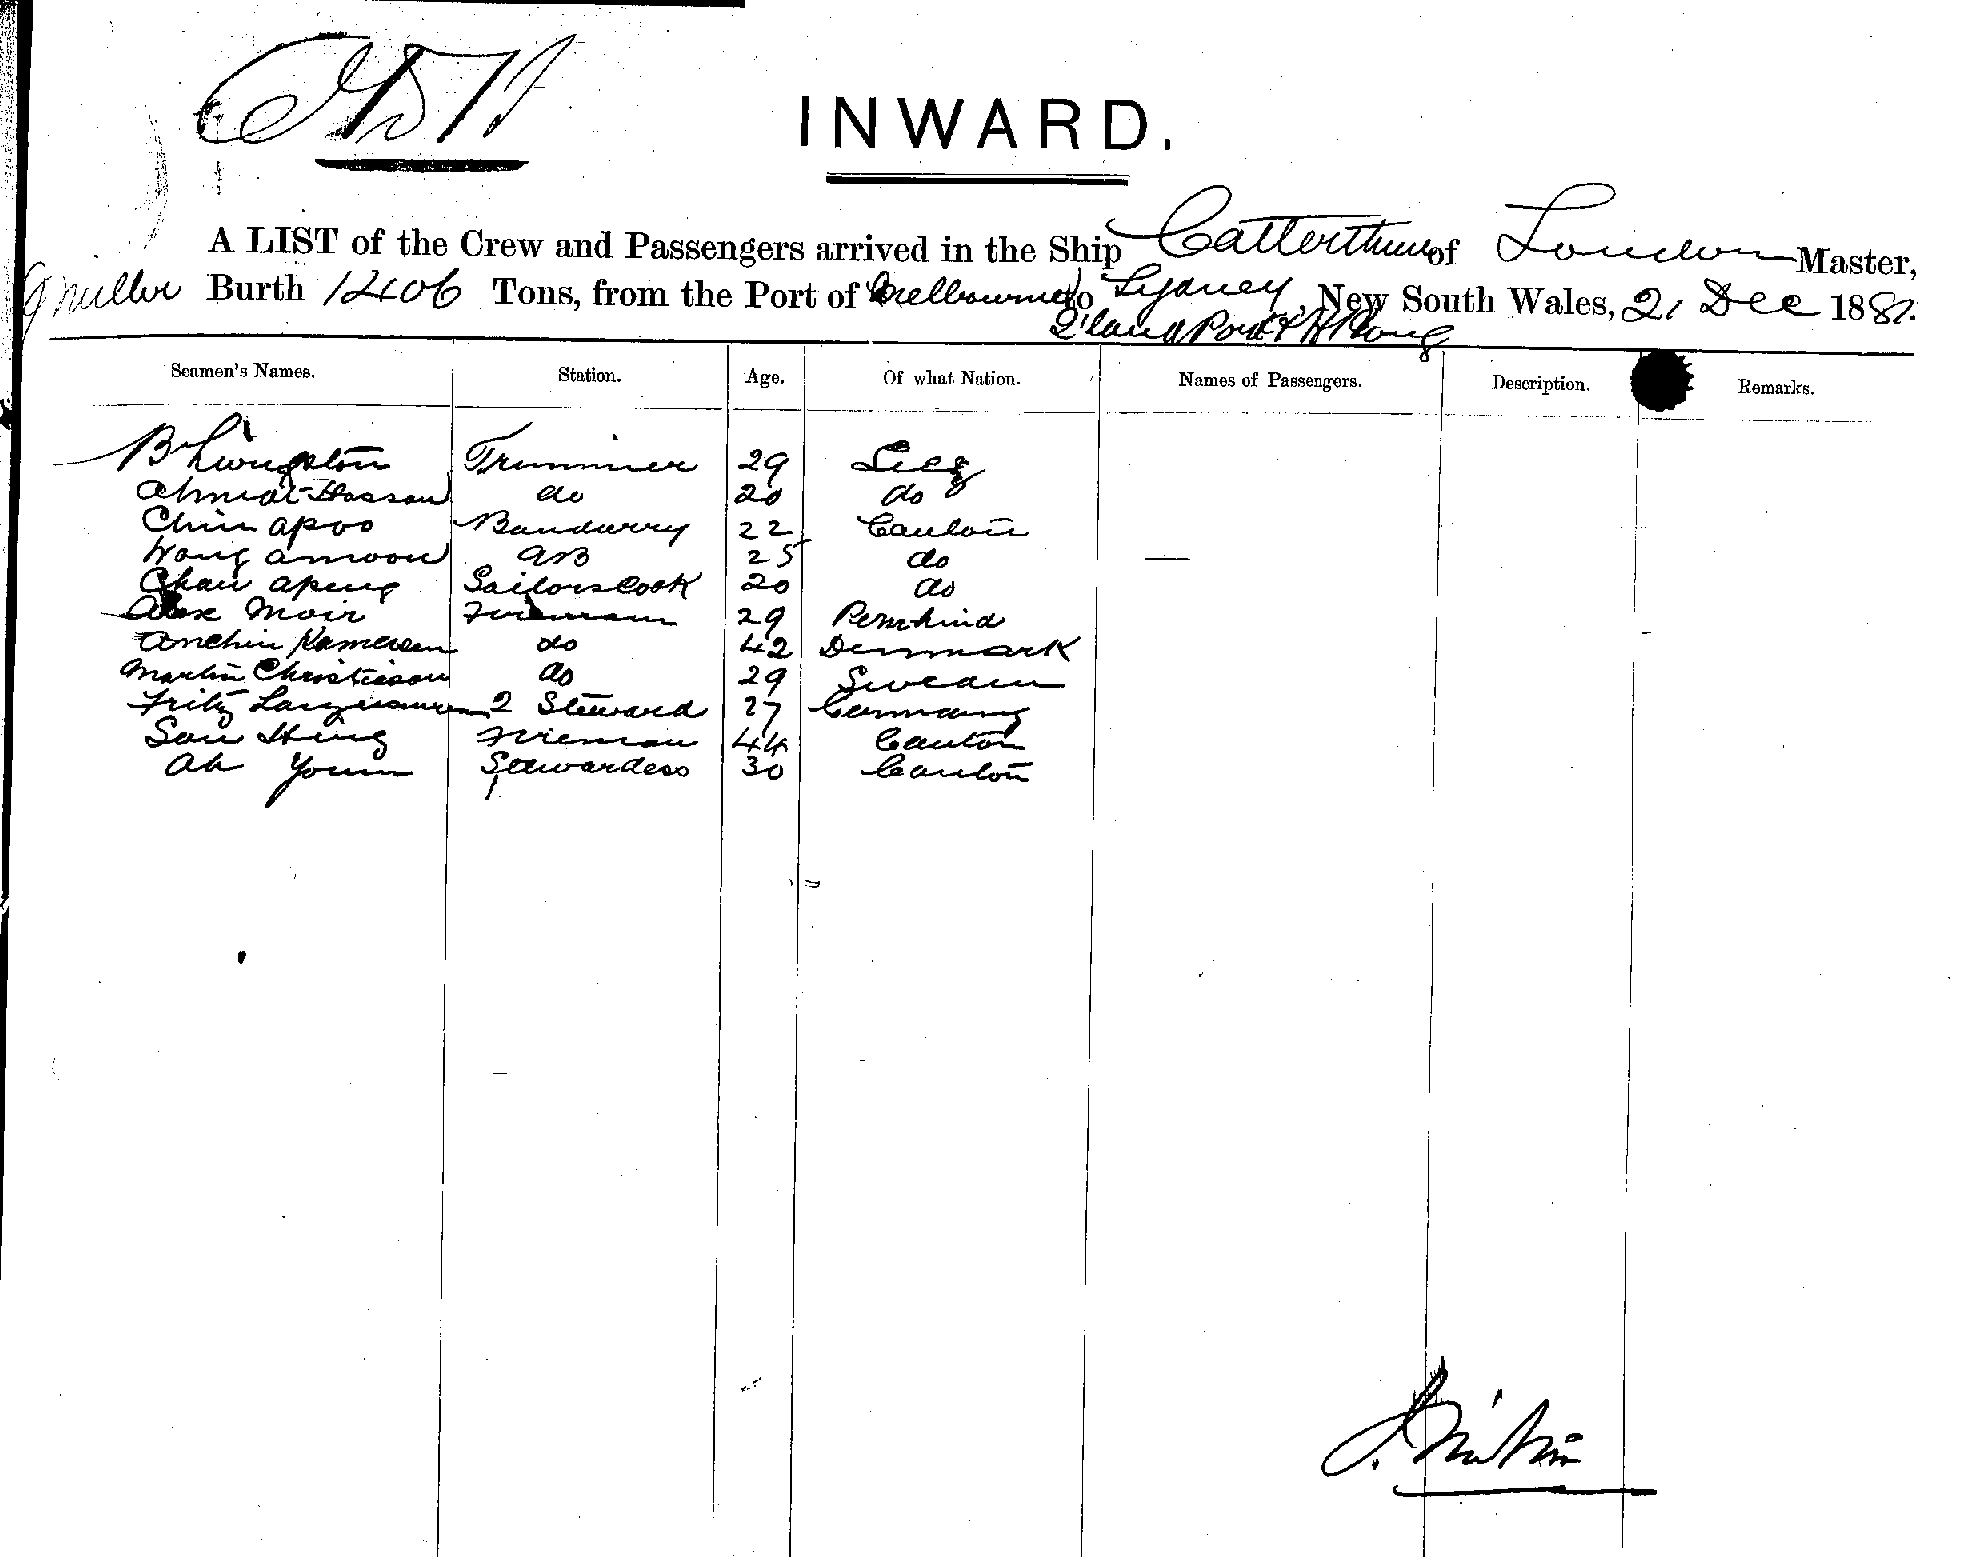 INWARD.
A LIST of the Crew and Passengers arrived in the Ship Catterthun of London Master,
Miller Burth 1406 Tons, from the Port of Melbourne to Sydney, New South Wales, 21 Dec 188
Q'land Port & H Kong
Seamen's Names. Station. Age. Of what Nation. Names of Passengers. Description. Remarks.
B Livingston Trimmer 29
Ahmat Hassan do 20 do
Chin apoo 22 Canton
Wong amoon AB 25 do
Chan apeng Sailors Cook 20 do
Alex Moir Fireman 29
do 42 Denmark
Martin Christieson do 29 Sweden
Fritz 2 Steward 27 Germany
San Hing Fireman 44 Canton
Ah Youm Stewardess 30 Canton